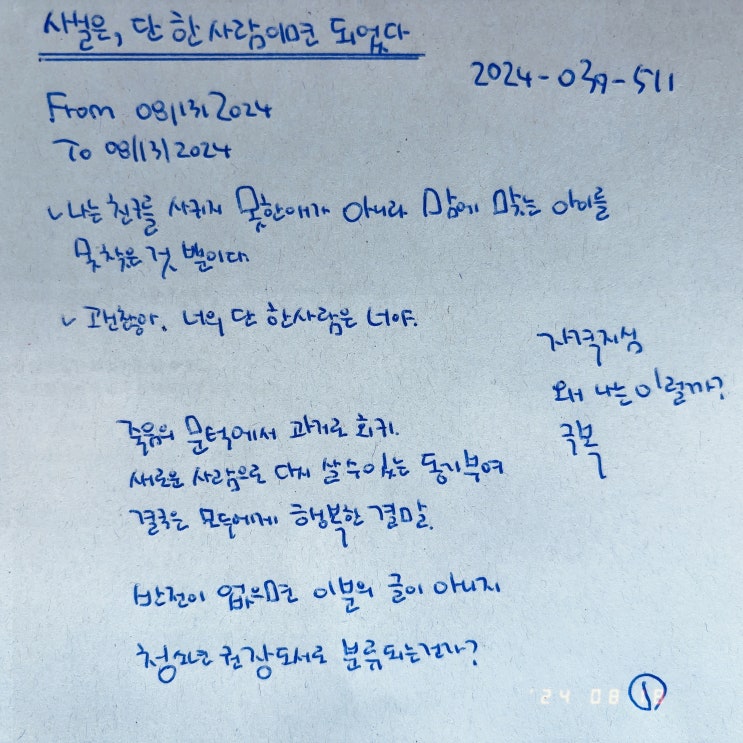 사실은, 단 한 사람이면 되었다
2024-039-511
From 08/13/2024
To 08/13/2024
✓ 나는 친구를 사귀지 못한 애가 아니라 맘에 맞는 아이를
못 찾은 것 뿐이다.
✓ 괜찮아. 너의 단 한사람은 너야.
자격지심
왜 나는 이럴까?
극복
죽음의 문턱에서 과거로 회귀.
새로운 사람으로 다시 살 수 있는 동기부여
결국은 모두에게 행복한 결말.
반전이 없으면 이분의 글이 아니지
청소년 권장도서로 분류되는건가?
'24 08
①